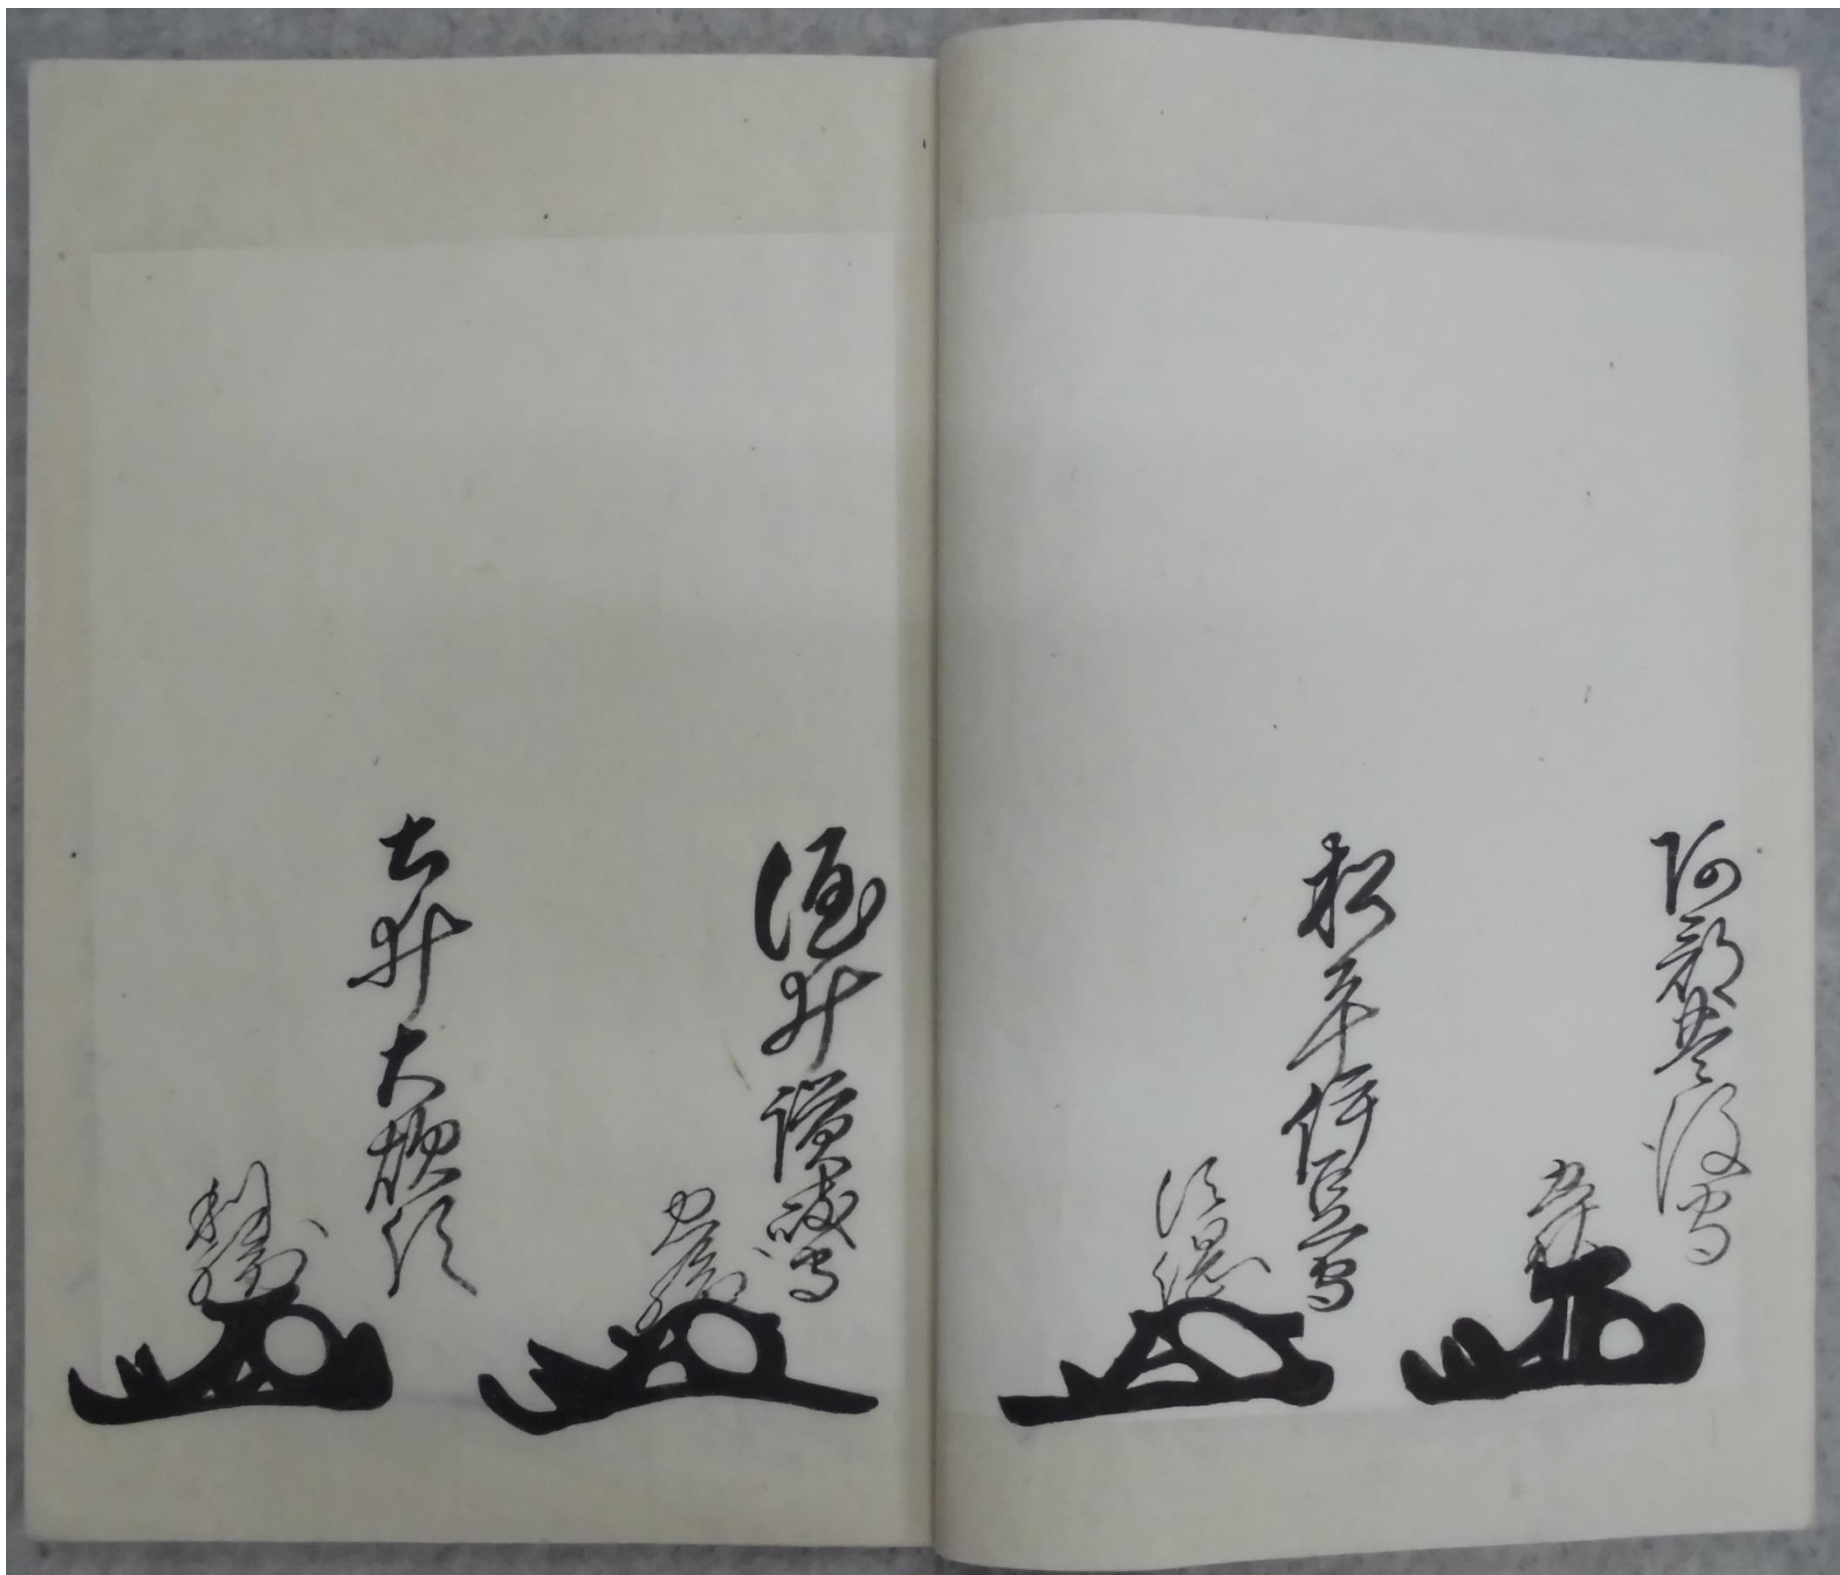 阿部豊後守
忠秋
松平伊豆守
信綱
酒井讃岐守
忠勝
土井大炊頭
利勝